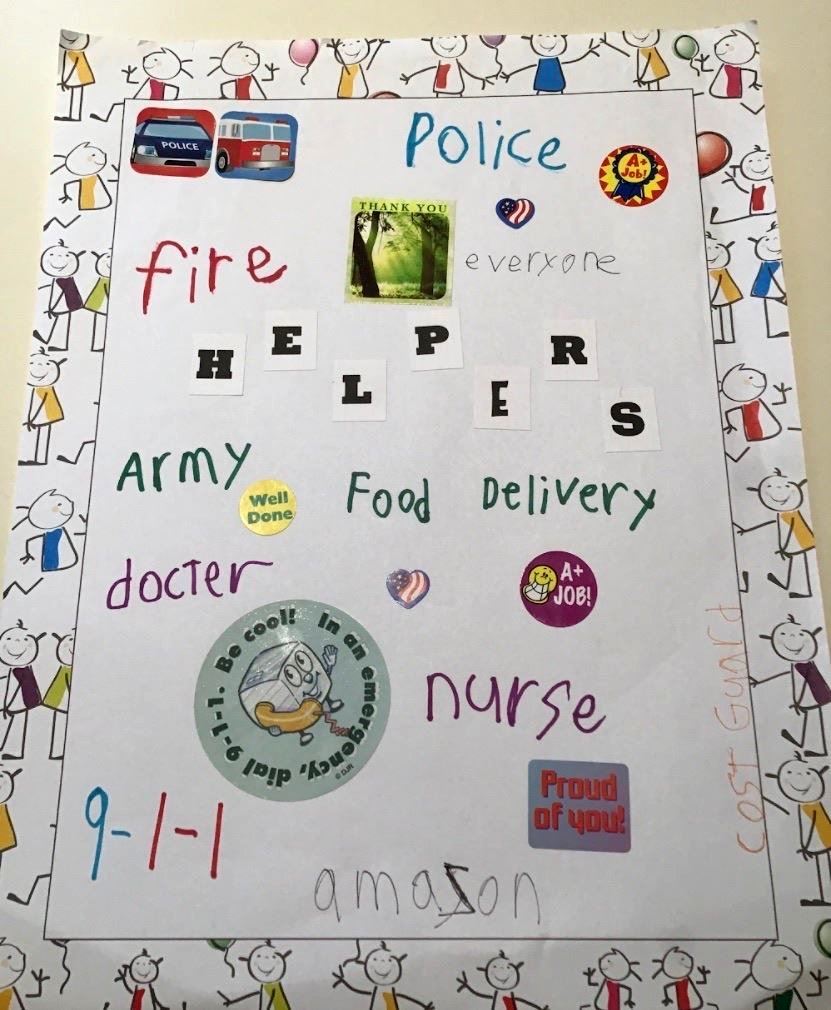 POLICE
Police
A+ Job!
THANK YOU
fire
everyone
HELPERS
Army
Well Done
Food Delivery
docter
A+ JOB!
Be cool! In an emergency, dial 9-1-1.
nurse
Cost Guard
Proud of you!
9-1-1
amazon